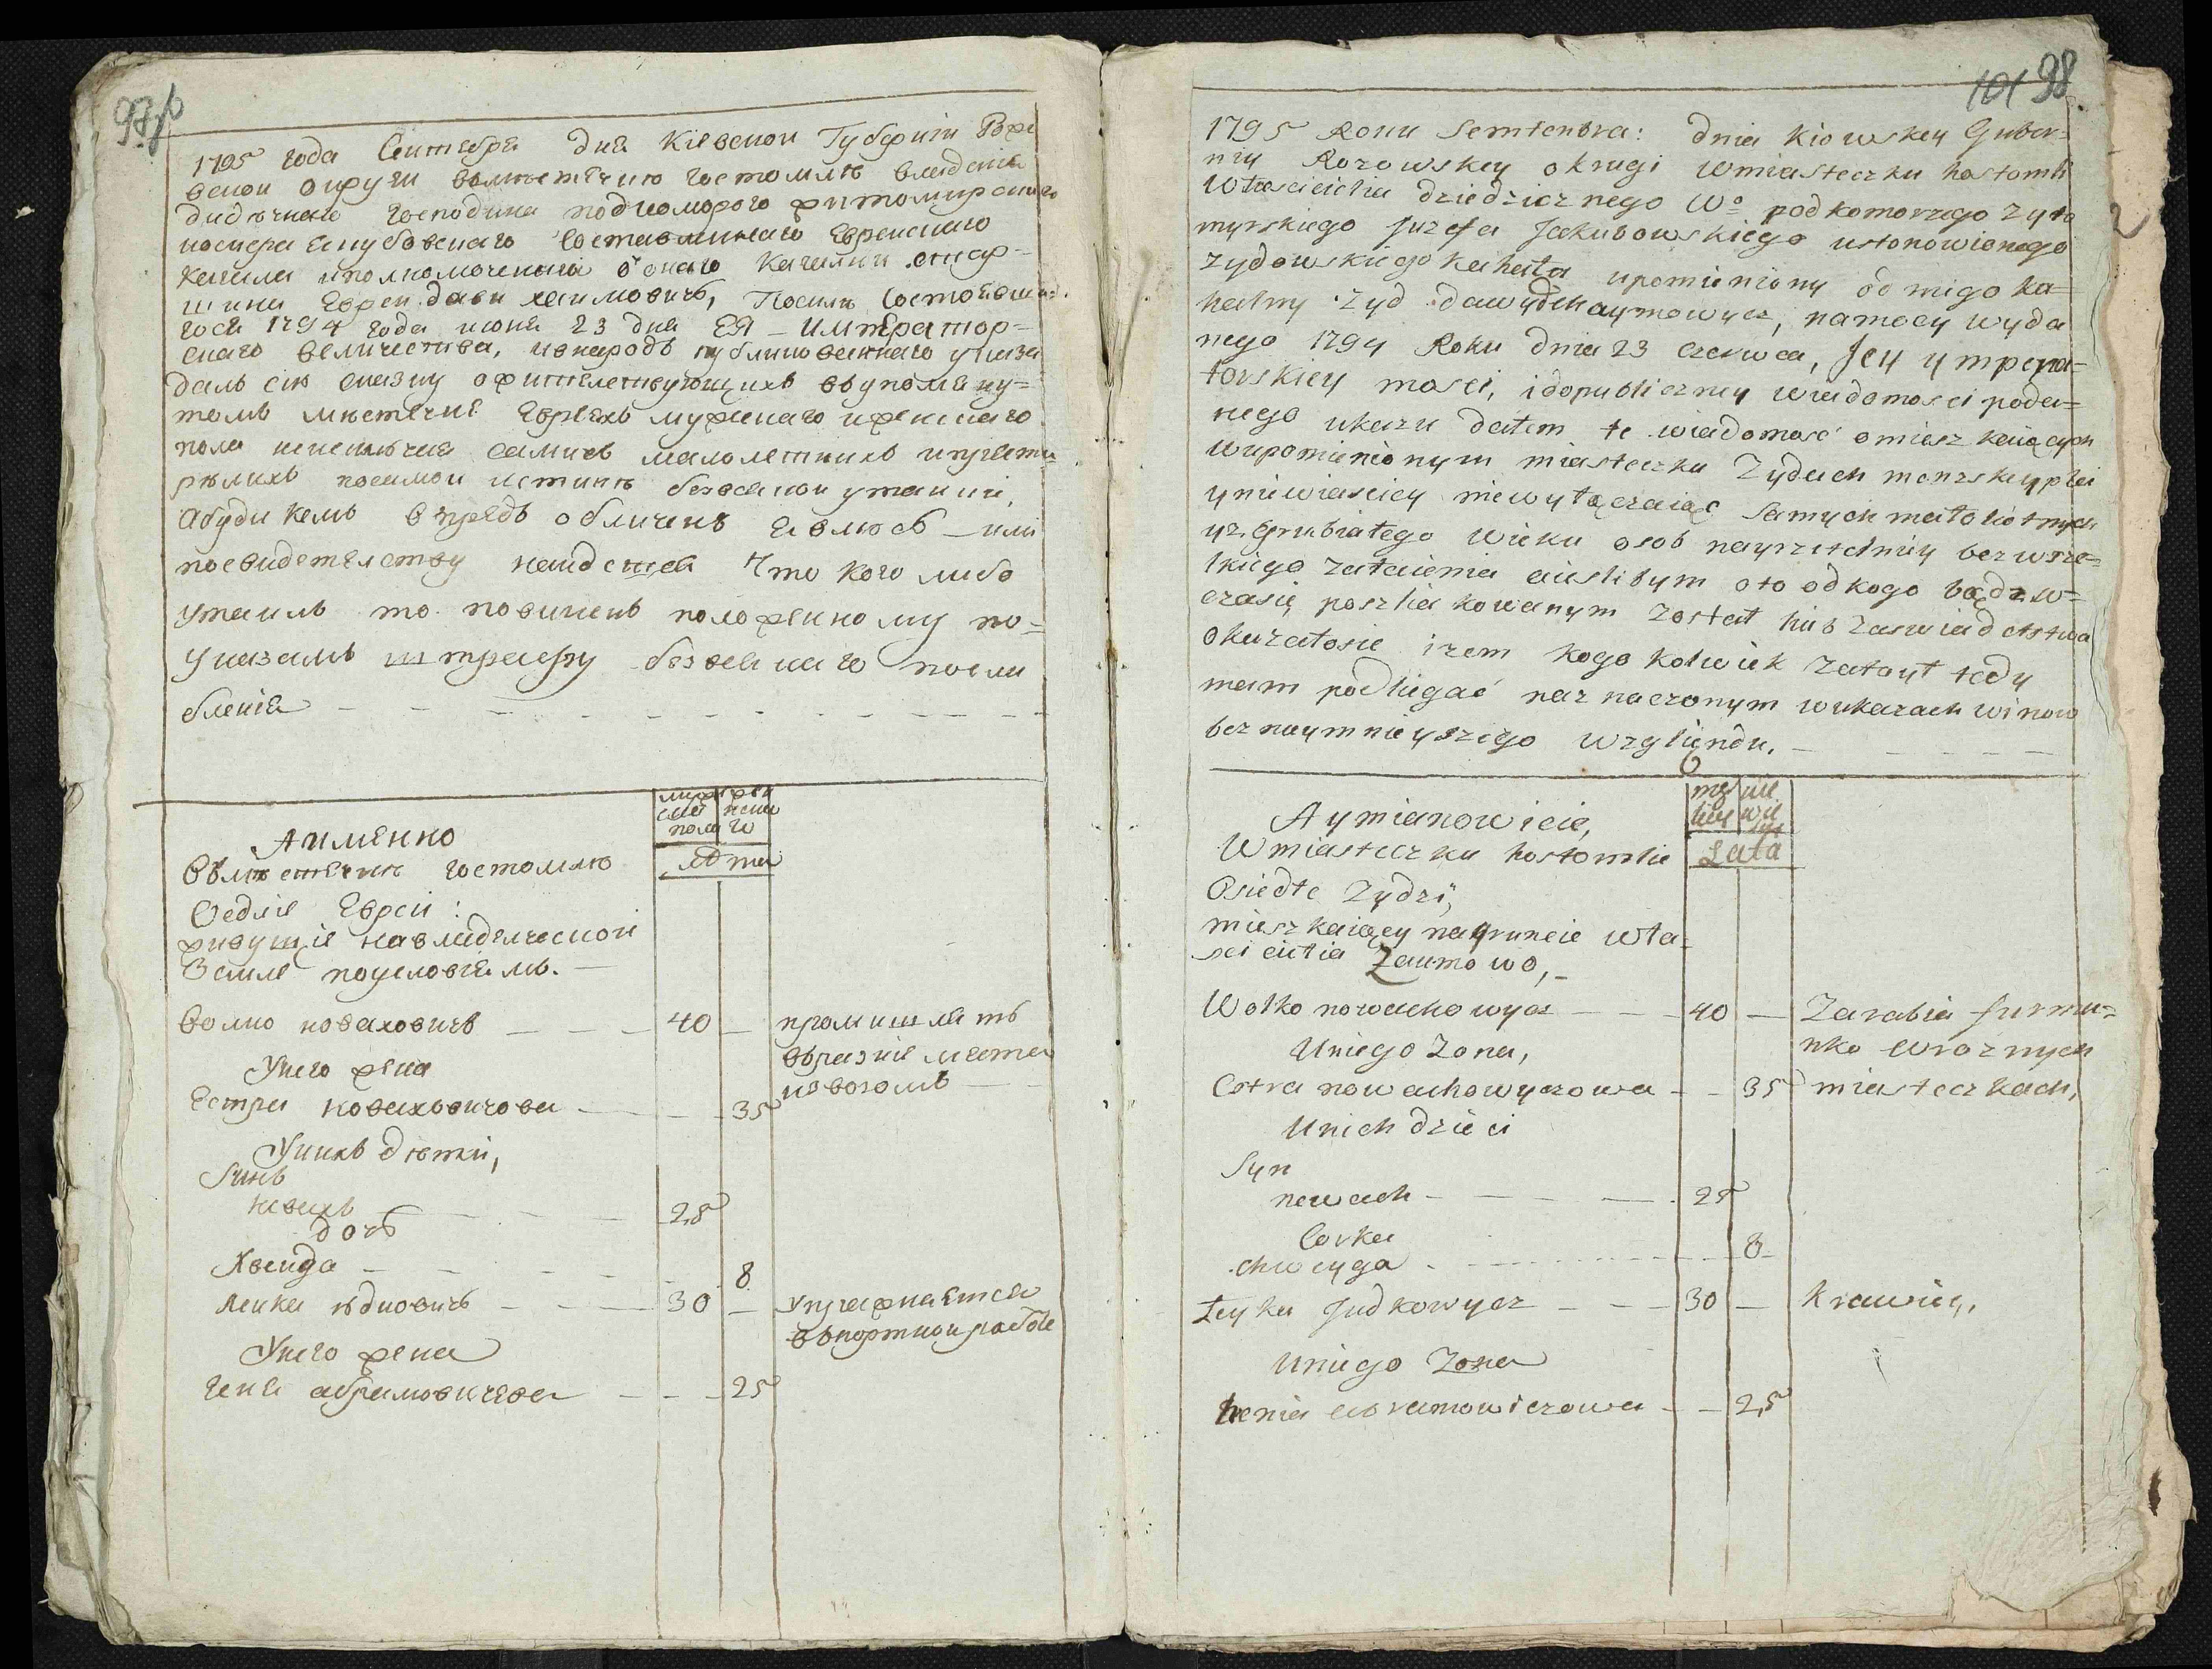 97об
1795 года Сентебря дня Кіевскои Губерніи Радо
вскои округи вмѣстечкю гостомлѣ владенія
дидичнаго господина подкоморого житомирскаго
юсифа Якубовскаго составлинаго Еврейскаго
кагала уполномоченный ѿ онаго кагални
Еврей давид хаимовичъ, По силѣ состоявша-
гося 1794 года июня 23 дня ЕЯ Император-
скаго величества, и в народъ публикованнаго указа
далъ сию сказку о жителствующихъ въ упомяну-
томъ мѣстечке Евреяхъ мужескаго и женскаго
пола не исключая самихъ малолетнихъ и преста
рѣлихъ по самои истинѣ без всякои утаики,
А буди кемъ впредь обличенъ явлюсь или
по свидетелству найдется что кого либо
утаилъ то повиненъ положенному по
указамъ штрафу без всякаго посла
бленія
Аименно
муже ска пола
женска го
лѣта
Вмѣстечкѣ гостомлю
Оседліе Евреи:
живущіе на владелческой
Земле по условіямъ.
Волко новаховичъ 40 промишляетъ
вразніе места
извозомъ
У него жена
Естра новаховичова 35
У нихъ дѣтки,
Синъ
Невахъ 25
дочь
Хвейга 8
лейка юдковичъ 30 упражняется
в портнои работе
У него жена
геня абрамовичева 25
101 98
1795 Roku Semtenbra: dnia Kiowskey Guber-
nij Rozowskey okrugi w miasteczku hostomli
własciciela dziedzicznego Wo podkomorzego żyto
myrskiego Juzefa Jakubowskiego ustonowionego
żydowskiego Kahała upomieniony od niego ka
halny żyd dawyd chaymowycz, na mocy wyda
nego 1794 Roku dnia 23 czerwca, Jey ympera-
torskiey mosci, i do publiczney wiadomosci poda=
nego ukazu dałem te wiadomosć o mieszkaiących
w upomienionym miasteczku Żydach menzskiy płci
y niewiasciey nie wyłączaiąc samych małoliotnych
y zgrubiałego wieku osob nayrzetelniey bez wsze=
lkiego zataienia aieslibym oto od kogo bądz w=
czasię poszlakowanym został lub zaswiadetstwa
okazałosie i żem kogo kolwiek zataył tedy
mam podlegać naznaczonym w ukazach winow
bez naymnieyszego względu.
Aymianowicie,
mę skiy
nie wie sciy
Lata
W miasteczku hostomlie
Osiedłe Żydzi,
mieszkaiący na gruncie wła-
sciciela za umowo,
Wolko nowachowycz 40 Zarabia furma=
nko w roznych
miasteczkach,
U niego Zona,
Estra nowachowyczowa 35
U nich dzieci
Syn
newach 25
Corka
chweyga 8
Leyka Judkowycz 30 Krawiey,
U niego Zona
henia abramowiczowa 25